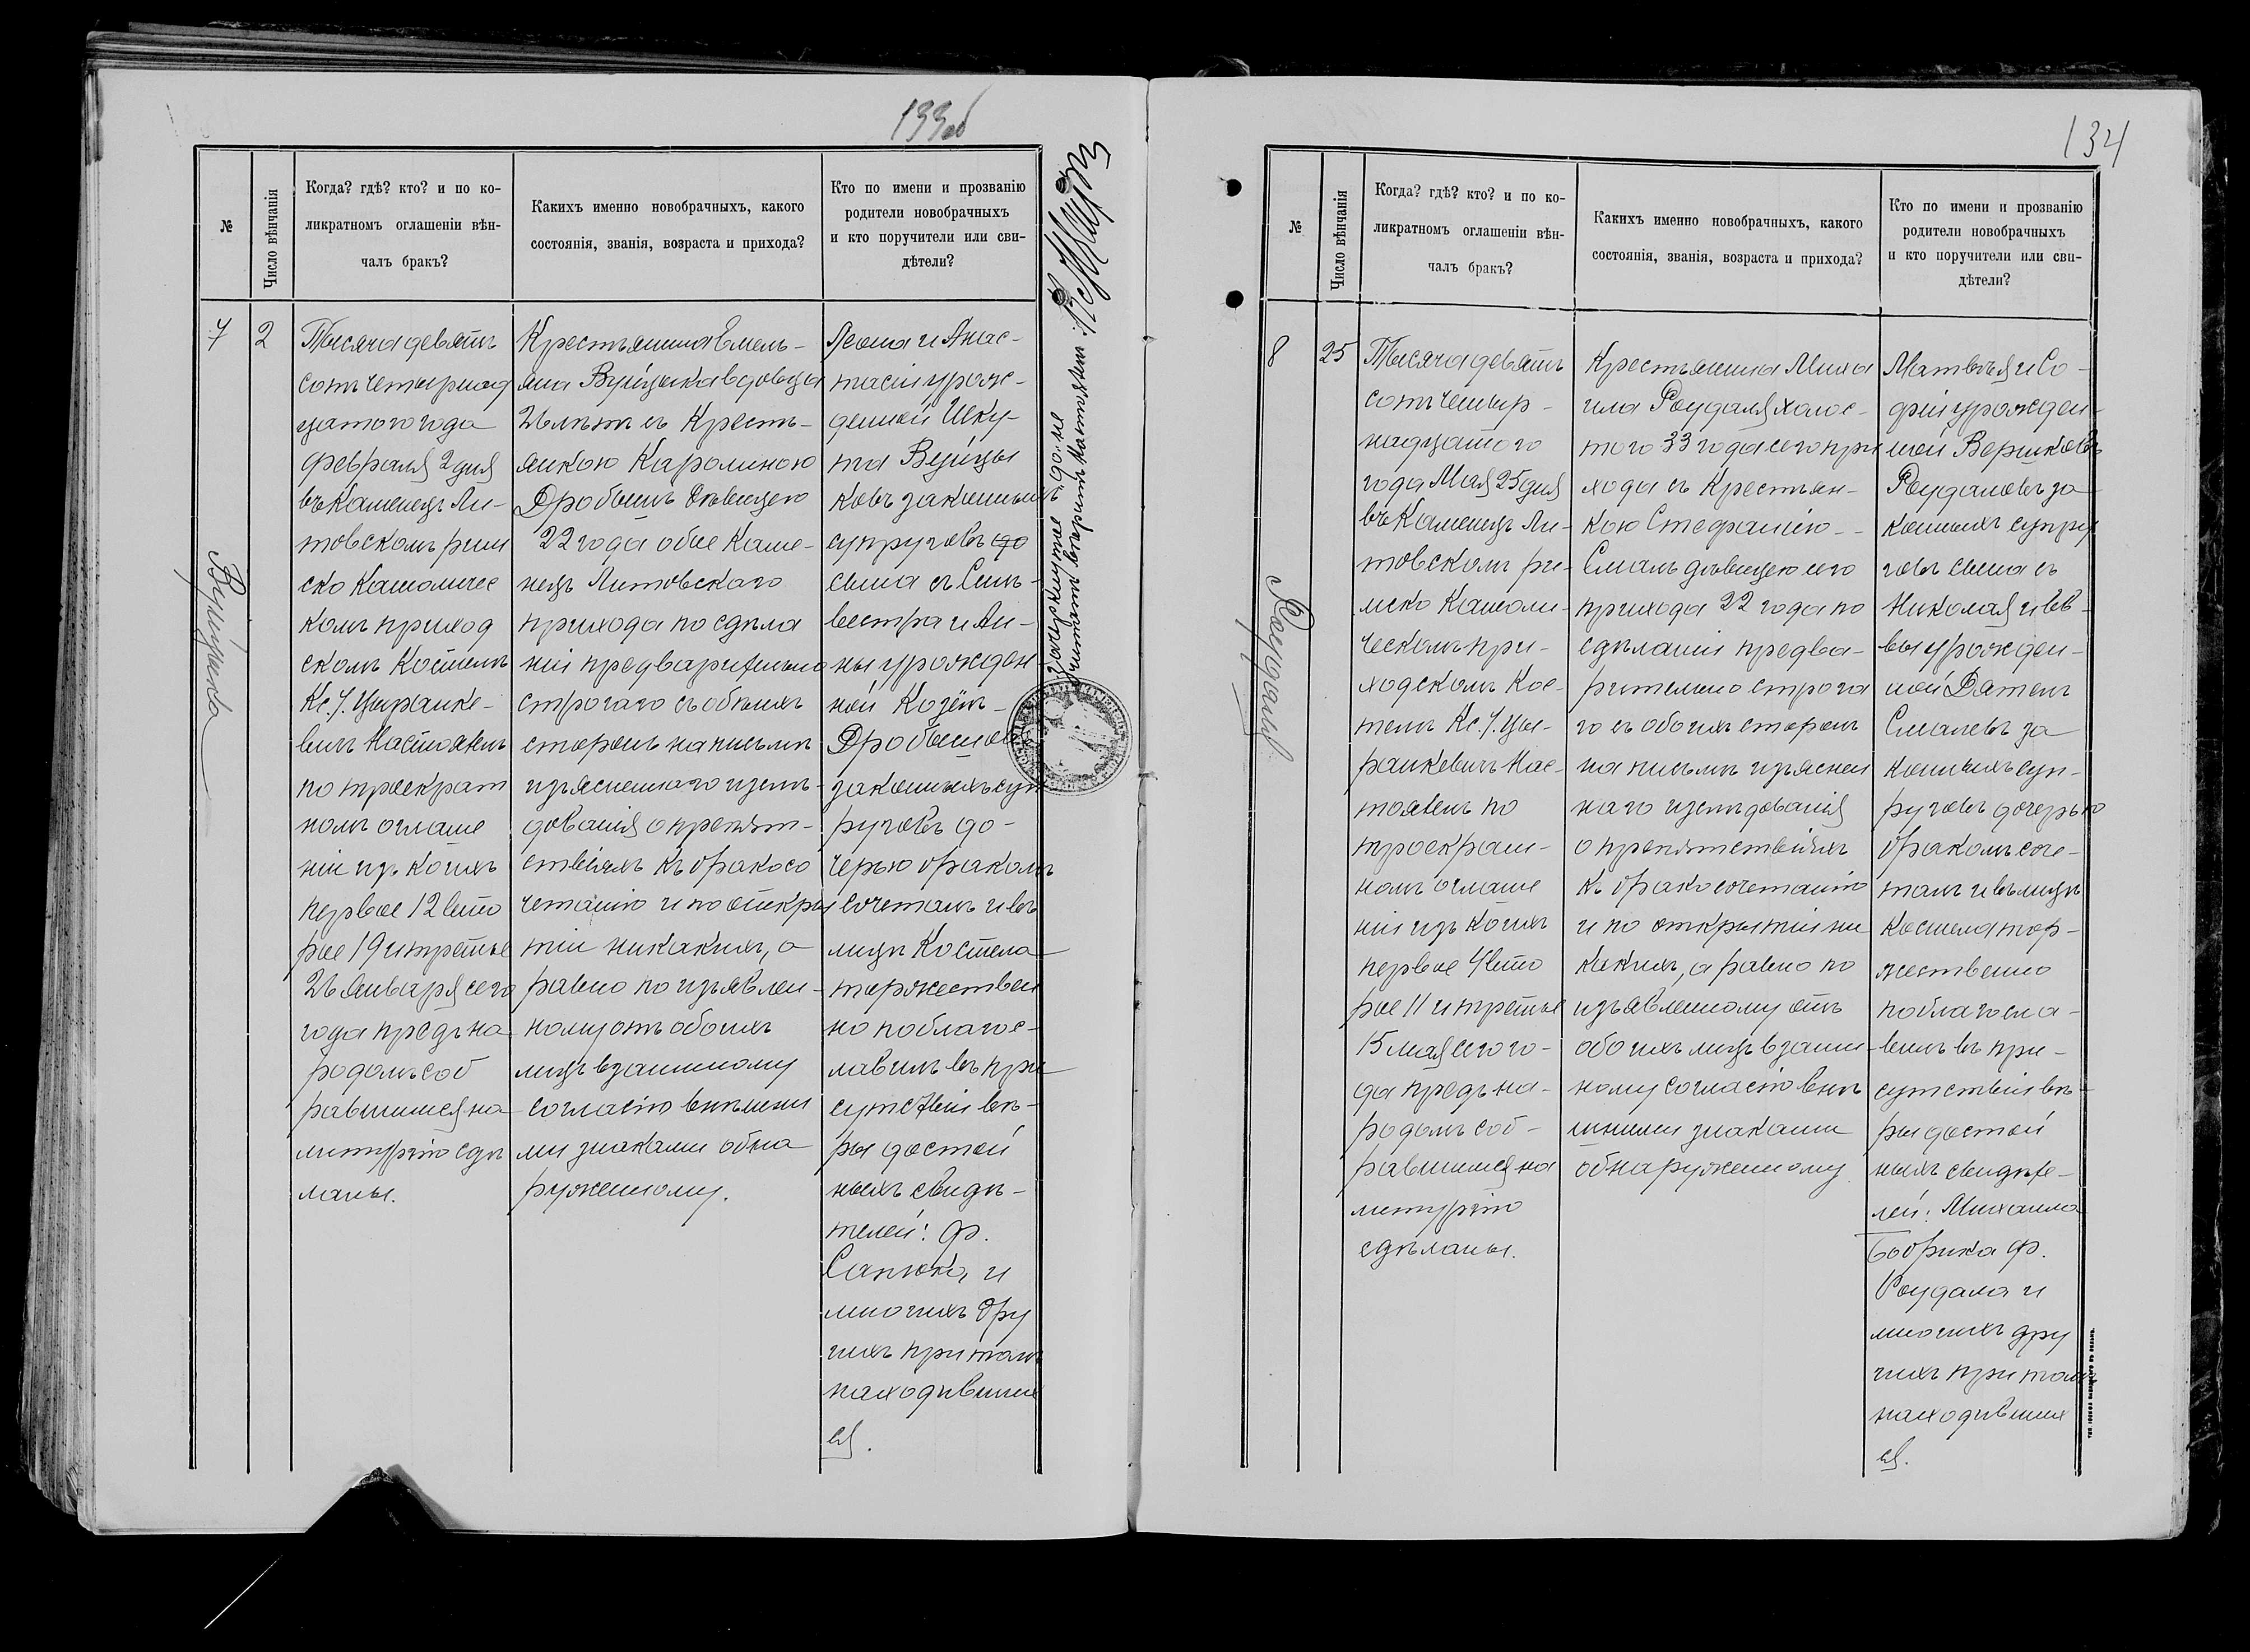 133об
№
Число вѣнчанія
Когда? гдѣ? кто? и по ко-
ликратномъ оглашеніи вѣн-
чалъ бракъ?
Какихъ именно новобрачныхъ, какого
состоянія, званія, возраста и прихода?
Кто по имени и прозванію
родители новобрачныхъ
и кто поручители или сви-
дѣтели?
7
2
Тысяча девять
сотъ четырнад
цатого года
февраля 2 дня
въ Каменецъ Ли-
товскомъ рим
ско Католичес
комъ приход
скомъ Костелѣ
Кс. У. Цыранке-
вичъ Настоятель
по троекрат
номъ оглаше
ніи изъ коихъ
первое 12 вто
рое 19 и третье
26 Января сего
года предъ на
родомъ соб
равшимся на
литургію сдѣ
ланы.
Крестьянина Емель-
яна Вуйцыка вдовца
26 лѣтъ съ Кресть-
янкою Каролиною
Дробышъ дѣвицею
22 года обое Каме-
нецъ Литовскаго
прихода по сдѣла
ніи предварительно
строгаго съ обѣихъ
сторонъ на письмѣ
изъясненнаго изслѣ-
дованія о препят-
ствіяхъ къ бракосо
четанію и по откры
тіи никакихъ, а
равно по изъявлен-
ному отъ обоихъ
лицъ взаимному
согласію внѣшни
ми знаками обна
руженному.
Леона и Анас-
тасіи урож-
денной Шку-
та Вуйцы
ковъ законныхъ
супруговъ до
сына съ Силь-
вестра и Ан-
ны урожден
ной Козёлъ-
Дробышовъ
законныхъ суп
руговъ до-
черью бракомъ
сочеталъ и въ
лицѣ Костела
торжествен
но поблагос-
лавилъ въ при
сутствіи вѣ-
ры достой
ныхъ свидѣ-
телей: Ф.
Сапюка, и
многихъ дру
гихъ при томъ
находившихся
ся.
Вуйцыка
Зачеркнутое "до" не
читать вѣритъ Настоятель:
134
№
Число вѣнчанія
Когда? гдѣ? кто? и по ко-
ликратномъ оглашеніи вѣн-
чалъ бракъ?
Какихъ именно новобрачныхъ, какого
состоянія, званія, возраста и прихода?
Кто по имени и прозванію
родители новобрачныхъ
и кто поручители или сви-
дѣтели?
8
25
Тысяча девять
сотъ четыр-
надцатого
года Мая 25 дня
въ Каменецъ Ли-
товскомъ ри-
мско Католи-
ческомъ при-
ходскомъ Кос-
телѣ Кс. У. Цы-
ранкевичъ Нас-
тоятель по
троекрат-
номъ оглаше
ніи изъ коихъ
первое 4 вто
рое 11 и третье
15 мая сего го-
да предъ на-
родомъ соб-
равшимся на
литургію
сдѣланы.
Крестьянина Миха
ила Роудаля холос-
того 33 года сего при
хода съ Крестьян-
кою Стефаніею
Смаль дѣвицею сего
прихода 22 года по
сдѣланіи предва-
рительно строга
го съ обоихъ сторонъ
на письмѣ изъяснен
наго изслѣдованія
о препятствіяхъ
къ бракосочетанію
и по открытіи ни
какихъ, а равно по
изъявленному отъ
обоихъ лицъ взаим-
ному согласію внѣ
шними знаками
обнаруженному
Матвѣя и Со-
фіи урожден-
ной Вершковъ
Роудаловъ за-
конныхъ супру
говъ сына съ
Николая и Ев-
вы урожден-
ной Дателъ
Смалевъ за
конныхъ суп-
руговъ дочерью
бракомъ соче-
талъ и въ лицѣ
Костела тор-
жественно
поблагосла-
вилъ въ при-
сутствіи вѣ-
ры достой
ныхъ свидѣте-
лей: Михаила
Бобрика Ф.
Роудала и
многихъ дру
гихъ при томъ
находившихся
ся.
Роудаль